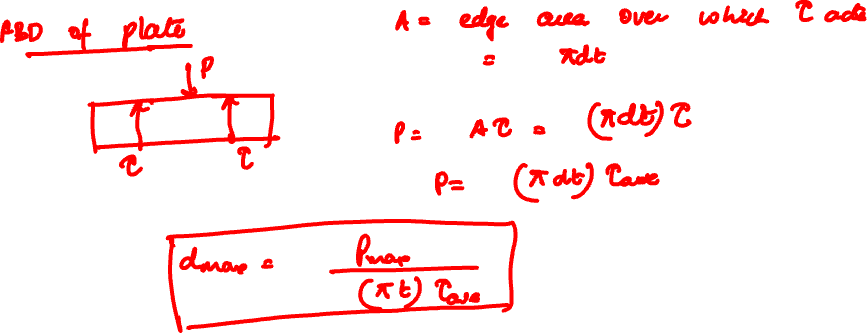 FBD of plate
A = edge area over which τ acts
= πdt
P
τ τ
P = Aτ = (πdt) τ
P = (πdt) τave
dmax = Pmax / (πt) τave